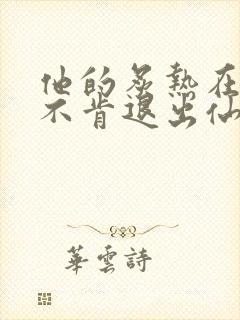 他的炙熱在
不肯退出仙
華雲詩